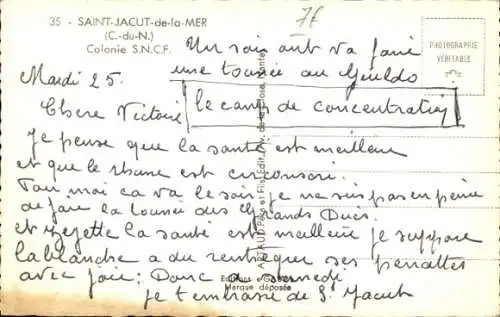 35 - SAINT-JACUT-de-la-MER
(C.-du-N.)
Colonie S.N.C.F.
7f
PHOTOGRAPHIE
VÉRITABLE
Un soir on va faire
une tournée au Guildo
Mardi 25.
le camp de concentration
Chere Victoire
Je pense que la santé est meilleure
et que le rhume est
moi ca va le soir je ne suis pas en peine
de faire la tournée des Grands Ducs.
et la santé est meilleure je suppose
la blanche a du ses penattes
avec joie; Donc a samedi
je t'embrasse de S. Jacut
ARTAUD Père et Fils, Édit., Av. de la Close, Nantes
Marque déposée